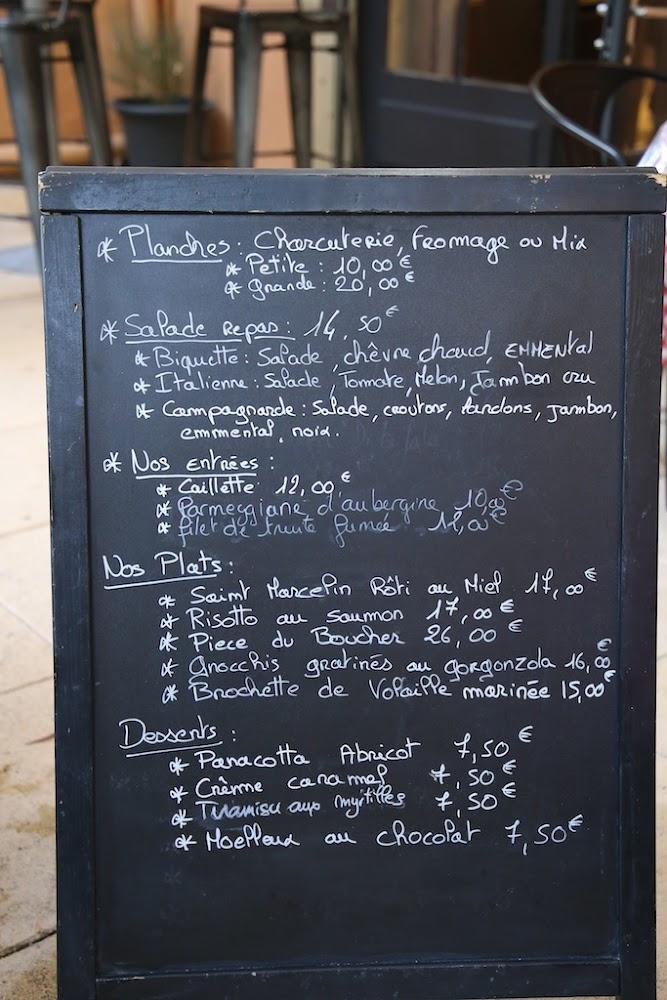 * Planches : Charcuterie, Fromage ou Mix
* Petite : 10,00€
* Grande : 20,00€
* Salade repas : 14,50€
* Biquette : Salade, chèvre chaud, EMMENtal
* Italienne : Salade, Tomate, Melon, Jambon cru
* Campagnarde : Salade, croutons, lardons, jambon,
emmental, noix.
* Nos entrées :
* Caillette 12,00€
* Parmeggiane d'aubergine 10,00€
* filet de truite fumée 11,00€
Nos Plats :
* Saint Marcelin Rôti au Miel 17,00€
* Risotto au saumon 17,00€
* Piece du Boucher 26,00€
* Gnocchis gratinés au gorgonzola 16,00€
* Brochette de Volaille marinée 15,00€
Desserts :
* Panacotta Abricot 7,50€
* Crème caramel 7,50€
* Tiramisu aux myrtilles 7,50€
* Moelleux au chocolat 7,50€